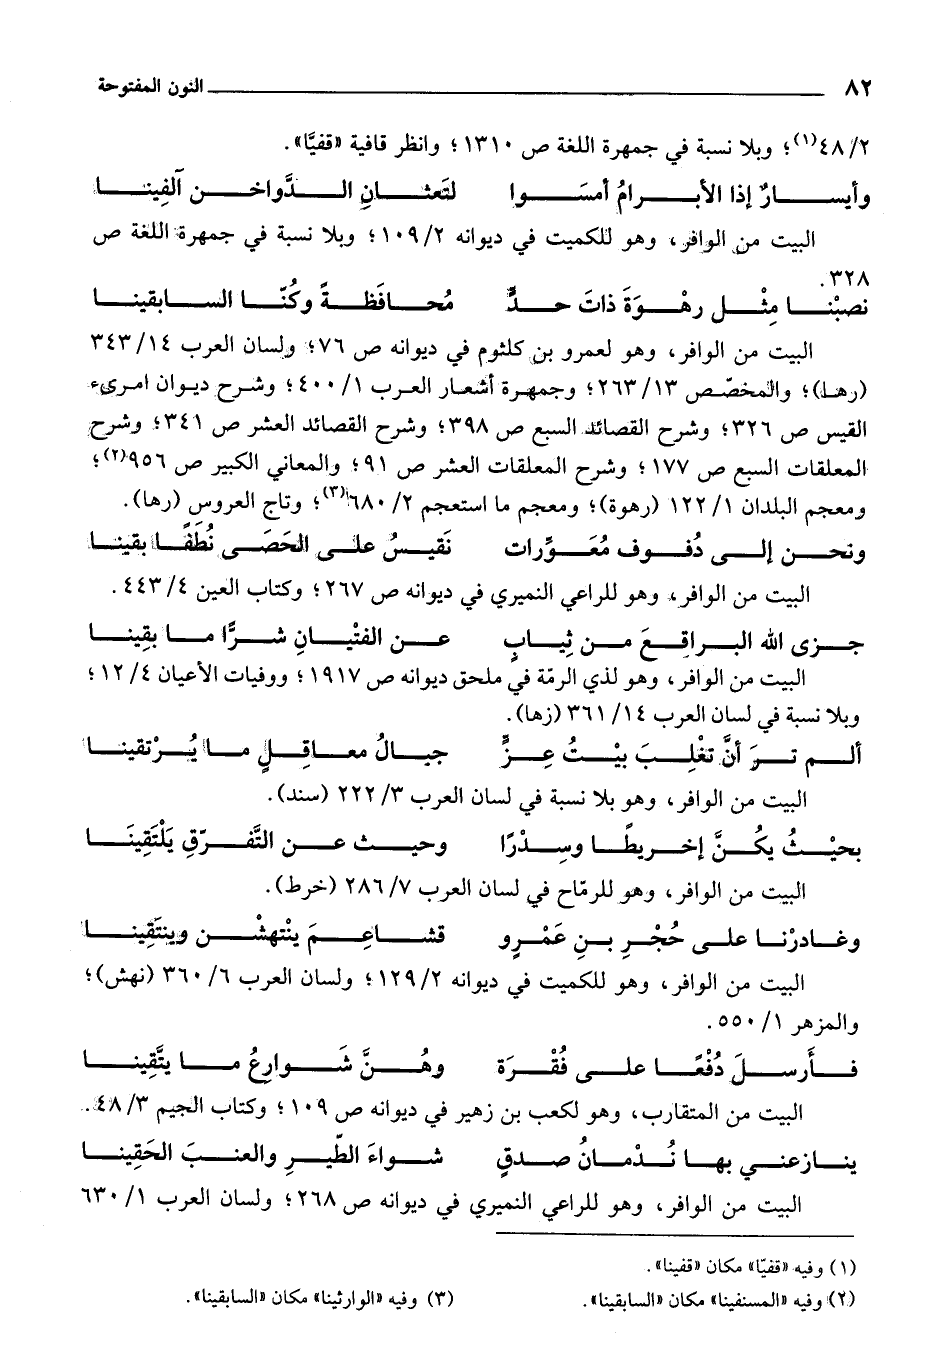 ٨٢ النون المفتوحة
٤٨/٢(١)؛ وبلا نسبة في جمهرة اللغة ص ١٣١٠؛ وانظر قافية «قفيَّا».
وأيسارٌ إذا الأبرامُ أمسَوا لتَعثانِ الدَّواخن آلِفينا
البيت من الوافر، وهو للكميت في ديوانه ١٠٩/٢؛ وبلا نسبة في جمهرة اللغة ص
٣٢٨.
نصبْنا مِثْل رهْوَةَ ذاتَ حدٍّ مُحافَظةً وكُنّا السابقينا
البيت من الوافر، وهو لعمرو بن كلثوم في ديوانه ص ٧٦؛ ولسان العرب ٣٤٣/١٤
(رها)؛ والمخصّص ٢٦٣/١٣؛ وجمهرة أشعار العرب ٤٠٠/١؛ وشرح ديوان امرىء
القيس ص ٣٢٦؛ وشرح القصائد السبع ص ٣٩٨؛ وشرح القصائد العشر ص ٣٤١؛ وشرح
المعلقات السبع ص ١٧٧؛ وشرح المعلقات العشر ص ٩١؛ والمعاني الكبير ص ٩٥٦(٢)؛
ومعجم البلدان ١٢٢/١ (رهوة)؛ ومعجم ما استعجم ٦٨٠/٢(٣)؛ وتاج العروس (رها).
ونحن إلى دُفوف مُغَوِّرات نَقيسُ على الحَصَى نُطَفًا بقينا
البيت من الوافر، وهو للراعي النميري في ديوانه ص ٢٦٧؛ وكتاب العين ٤٤٣/٤.
جزى الله البراقِعَ من ثِيابٍ عن الفتْيانِ شرًّا ما بقِينا
البيت من الوافر، وهو لذي الرمّة في ملحق ديوانه ص ١٩١٧؛ ووفيات الأعيان ١٢/٤؛
وبلا نسبة في لسان العرب ٣٦١/١٤ (زها).
ألم ترَ أنَّ تغْلِبَ بيْتُ عِزٍّ جبالُ معاقِلٍ ما يُرْتقينا
البيت من الوافر، وهو بلا نسبة في لسان العرب ٢٢٢/٣ (سند).
بحيْثُ يكُنَّ إخريطًا وسِدْرًا وحيث عن التَّفرّقِ يَلْتَقِينَا
البيت من الوافر، وهو للرمّاح في لسان العرب ٢٨٦/٧ (خرط).
وغادرْنا على حُجْرِ بنِ عَمْرٍو قشاعِمَ ينْتهشْن وينتَقِينا
البيت من الوافر، وهو للكميت في ديوانه ١٢٩/٢؛ ولسان العرب ٣٦٠/٦ (نهش)؛
والمزهر ٥٥٠/١.
فأَرسلَ دُفْعًا على فُقْرَة وهُنَّ شَوارِعُ ما يتَّقِينا
البيت من المتقارب، وهو لكعب بن زهير في ديوانه ص ١٠٩؛ وكتاب الجيم ٤٨/٣.
ينازعني بها نُدْمانُ صدقٍ شواءَ الطّيرِ والعنبَ الحَقِينا
البيت من الوافر، وهو للراعي النميري في ديوانه ص ٢٦٨؛ ولسان العرب ٦٣٠/١
(١) وفيه «قفيّا» مكان «قفينا».
(٢) وفيه «المسنفينا» مكان «السابقينا». (٣) وفيه «الوارثينا» مكان «السابقينا».